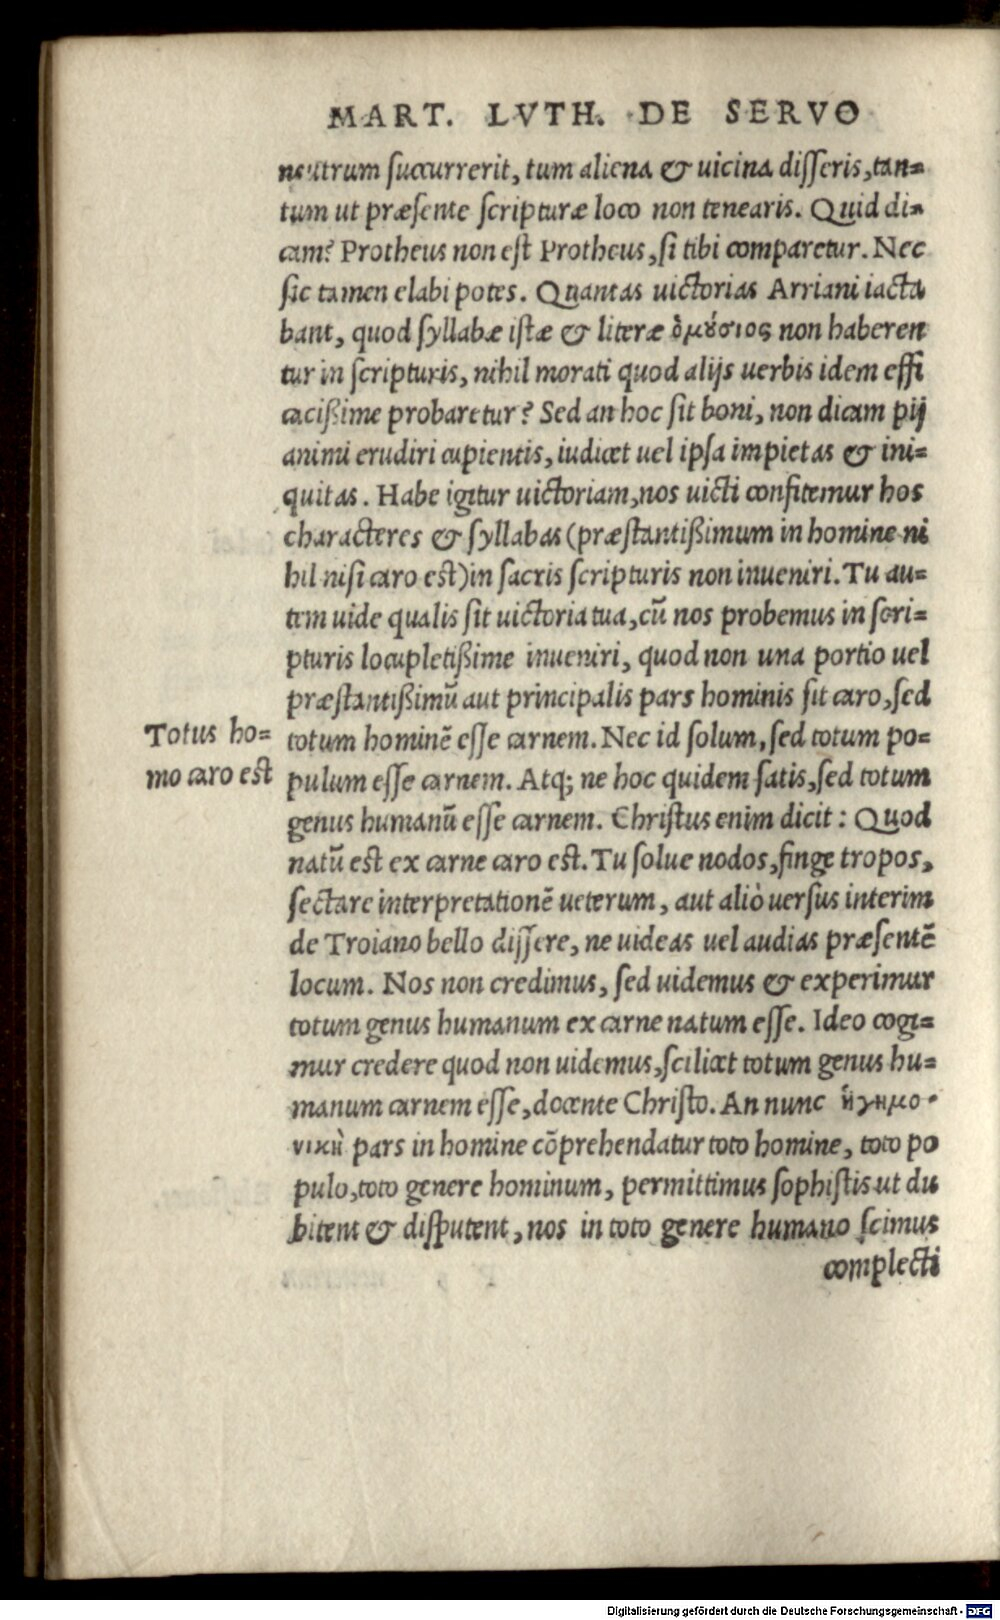 MART. LVTH. DE SERVO
neutrum succurrerit, tum aliena & uicina disseris, tan=
tum ut præsente scripturæ loco non tenearis. Quid di=
cam? Protheus non est Protheus, si tibi comparetur. Nec
sic tamen elabi potes. Quantas uictorias Arriani iacta
bant, quod syllabæ istæ & literæ ὁμούσιος non haberen
tur in scripturis, nihil morati quod alijs uerbis idem effi
cacißime probaretur? Sed an hoc sit boni, non dicam pij
animi erudiri cupientis, iudicet uel ipsa impietas & ini=
quitas. Habe igitur uictoriam, nos uicti confitemur hos
characteres & syllabas (præstantißimum in homine ni
hil nisi caro est) in sacris scripturis non inueniri. Tu au=
tem uide qualis sit uictoria tua, cũ nos probemus in scri=
pturis locupletißime inueniri, quod non una portio uel
præstantißimũ aut principalis pars hominis sit caro, sed
Totus ho=
mo caro est
totum hominẽ esse carnem. Nec id solum, sed totum po=
pulum esse carnem. Atq; ne hoc quidem satis, sed totum
genus humanũ esse carnem. Christus enim dicit: Quod
natũ est ex carne caro est. Tu solue nodos, finge tropos,
sectare interpretationẽ ueterum, aut aliò uersus interim
de Troiano bello dissere, ne uideas uel audias præsentẽ
locum. Nos non credimus, sed uidemus & experimur
totum genus humanum ex carne natum esse. Ideo cogi=
mur credere quod non uidemus, scilicet totum genus hu=
manum carnem esse, docente Christo. An nunc ἡγημο-
νικὴ pars in homine cõprehendatur toto homine, toto po
pulo, toto genere hominum, permittimus sophistis ut du
bitent & disputent, nos in toto genere humano scimus
complecti
Digitalisierung gefördert durch die Deutsche Forschungsgemeinschaft - DFG